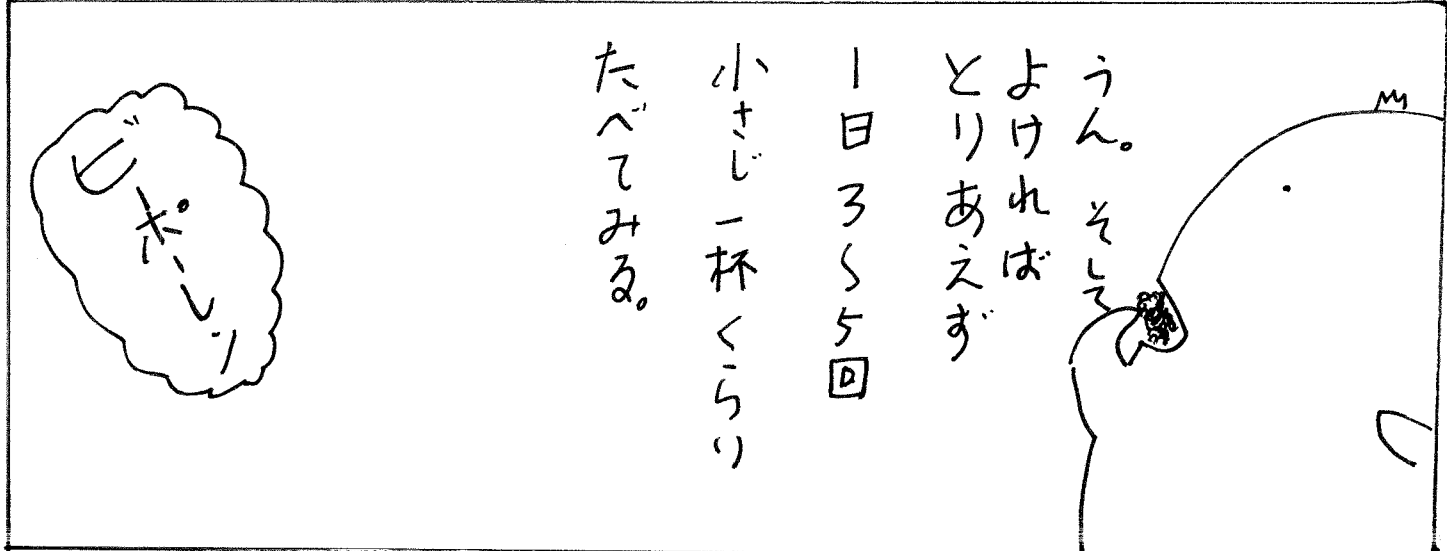 うん。 そして
よければ
とりあえず
1日3〜5回
小さじ一杯くらい
たべてみる。
ビーポーレン